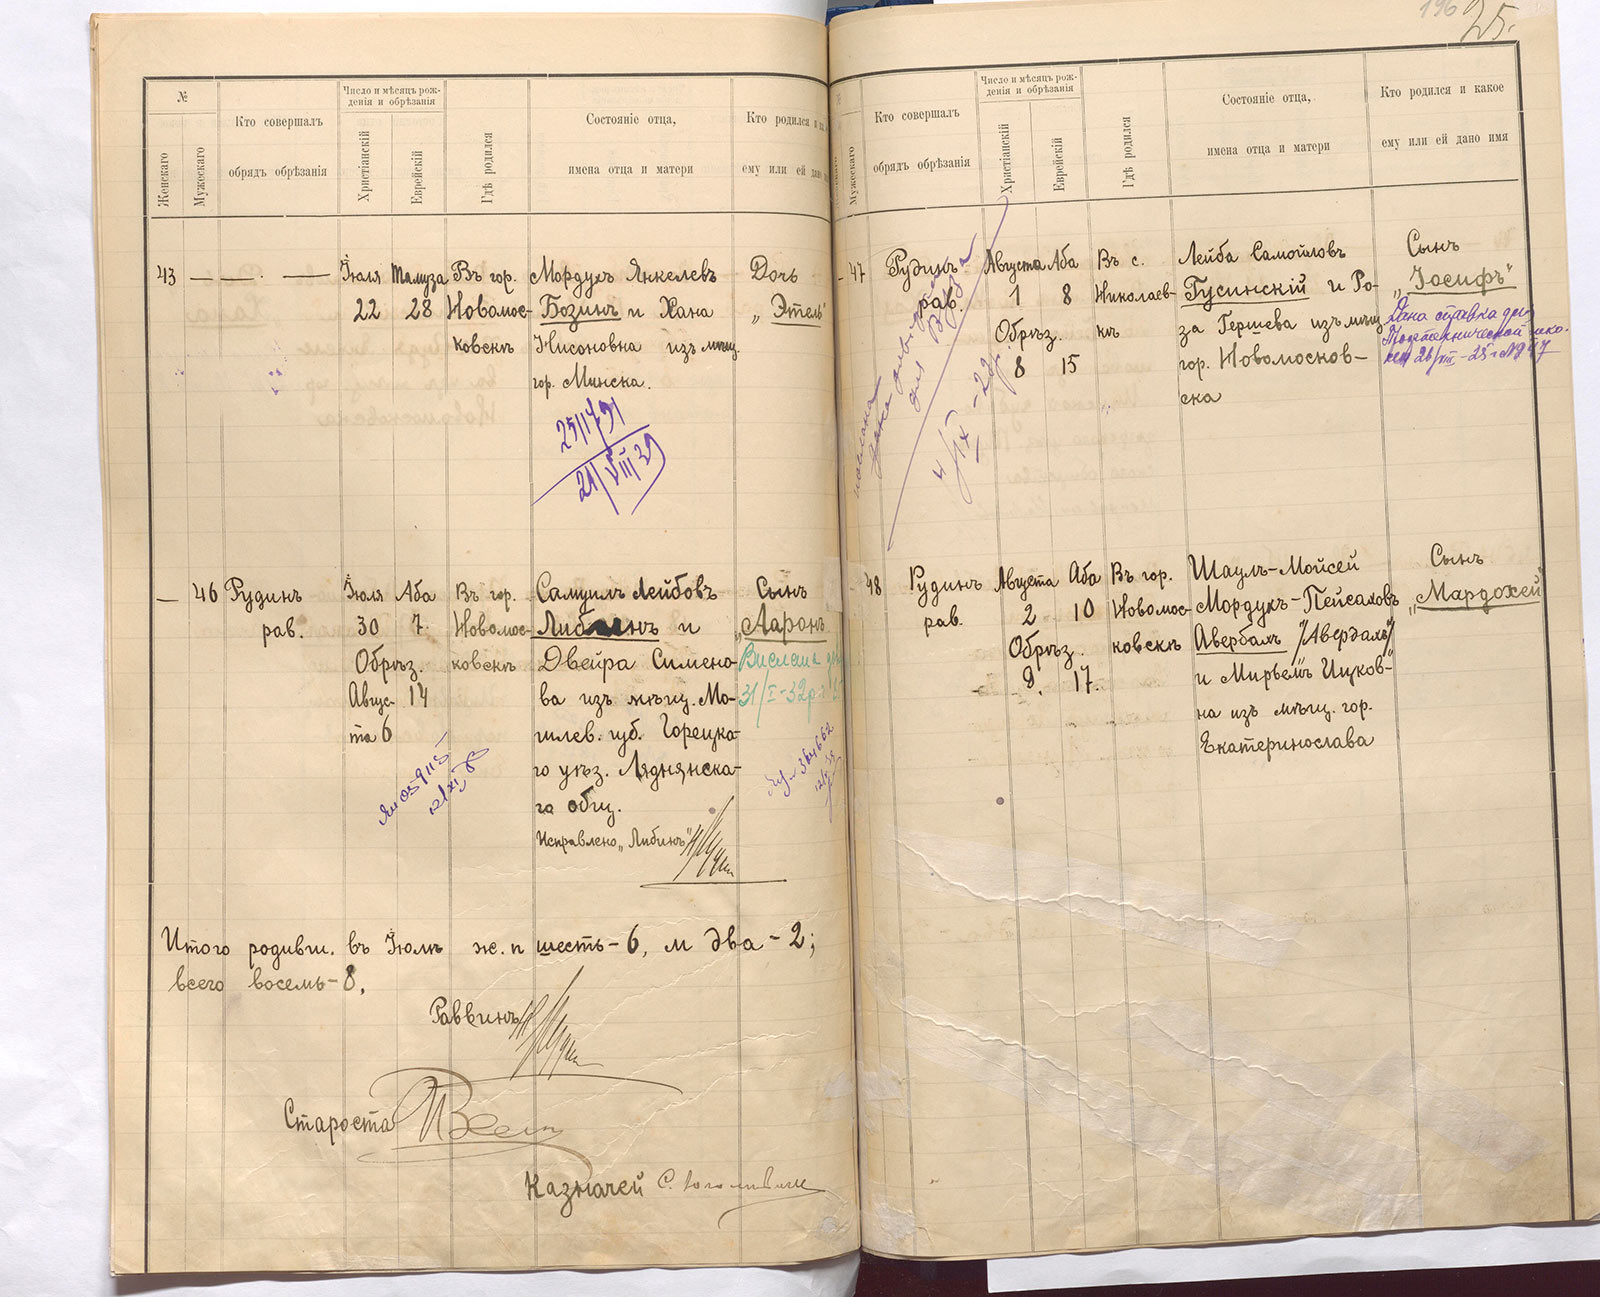 196 25.
№
Женскаго
Мужескаго
Кто совершалъ
обрядъ обрѣзанія
Число и мѣсяцъ рож-
денія и обрѣзанія
Христіанскій
Еврейскій
Гдѣ родился
Состояніе отца,
имена отца и матери
Кто родился и
ему или ей дано
43 — — . — Іюля Тамуза Въ гор. Мордухъ Янкелевъ Дочь
22 28 Новомос- Бозинъ и Хана „Этель"
ковскъ Нисоновна изъ мѣщ.
гор. Минска.
251791
21/VIII 39
— 46 Рудинъ Іюля Аба Въ гор. Самуилъ Лейбовъ Сынъ
рав. 30 7 Новомос- Либинъ и „Ааронъ
Обрѣз. ковскъ Двейра Симено-
Авгус- 14 ва изъ мѣщ. Мо-
31/I-32р.
та 6 гилев. губ. Горецка-
го уѣз. Ляднянска-
го общ.
Исправлено „Либинъ"
Итого родивш. въ Іюлѣ ж. п шесть - 6, м два - 2;
всего восемь - 8.
Раввинъ
Староста
Казначей
Мужескаго
Кто совершалъ
обрядъ обрѣзанія
Число и мѣсяцъ рож-
денія и обрѣзанія
Христіанскій
Еврейскій
Гдѣ родился
Состояніе отца,
имена отца и матери
Кто родился и какое
ему или ей дано имя
- 47 Рудинъ Августа Аба Въ с. Лейба Самойловъ Сынъ
рав. 1 8 Николаев- Гусинскій и Ро- „Іосифъ"
Обрѣз. къ за Гершева изъ мѣщ.
8 15 гор. Новомосков-
ска
Дана справка для
4/IX-29
48 Рудинъ Августа Аба Въ гор. Шаулъ-Мойсей Сынъ
рав. 2 10 Новомос- Мордухъ-Пейсаховъ „Мардохей
Обрѣз. ковскъ Авербахъ /Авердахъ/
9. 17. и Мирьемъ Ицков-
на изъ мѣщ. гор.
Екатеринослава